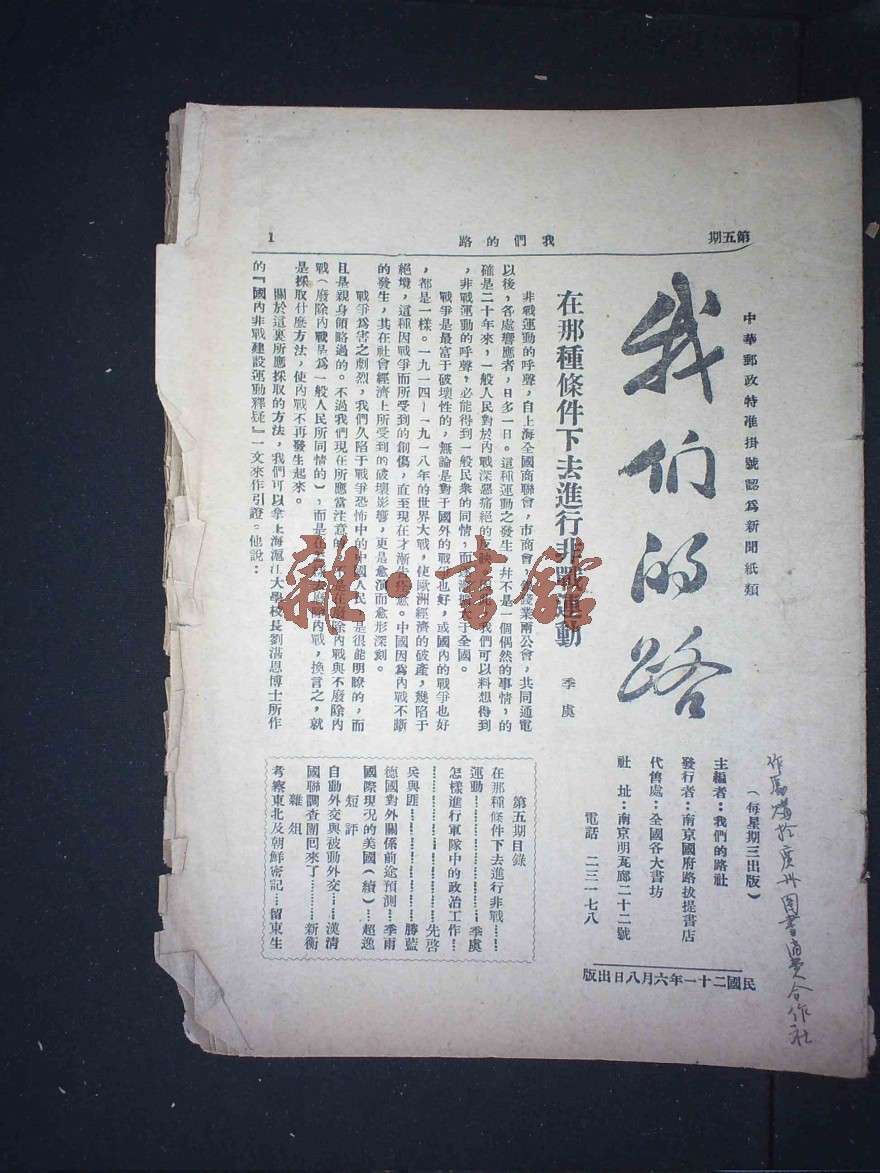 第五期
我們的路
1
中華郵政特准掛號認爲新聞紙類
我们的路
(每星期三出版)
主編者:我們的路社
發行者:南京國府路拔提書店
代售處:全國各大書坊
社 址:南京明瓦廊二十二號
電話 二三一七八
民國二十一年六月八日出版
在那種條件下去進行非戰運動
季虞
非戰運動的呼聲,自上海全國商聯會,市商會,錢業兩公會,共同通電
以後,各處響應者,日多一日。這種運動之發生,幷不是一個偶然的事情,的
確是二十年來,一般人民對於內戰深惡痛絕的反映,我們可以料想得到
,非戰運動的呼聲,必能得到一般民衆的同情,而大于全國。
戰爭是最富于破壞性的,無論是對于國外的戰爭也好,或國內的戰爭也好
,都是一樣。一九一四—一九一八年的世界大戰,使歐洲經濟的破產,幾陷于
絕境,這種因戰爭而所受到的創傷,直至現在才漸告痊愈。中國因爲內戰不斷
的發生,其在社會經濟上所受到的破壞影響,更是愈演而愈形深刻。
戰爭爲害之劇烈,我們久陷于戰爭恐怖中的中國人民,是很能明瞭的,而
且是親身領略過的。不過我們現在所應當注意的,不是在廢除內戰與不廢除內
戰(廢除內戰是爲一般人民所同情的),而是在廢除內戰,換言之,就
是採取什麼方法,使內戰不再發生起來。
關於這裏所應採取的方法,我們可以拿上海滬江大學校長劉湛恩博士所作
的『國內非戰建設運動釋疑』一文來作引證。他說:
第五期目錄
在那種條件下去進行非戰……
運動……………………季虞
怎樣進行軍隊中的政治工作…
………………………先啓
兵與匪…………………勝藍
德國對外關係前途預測…季雨
國際現况的美國(續)…超逸
短評
自動外交與被動外交……漢清
國聯調查團囘來了………新衡
雜俎
考察東北及朝鮮密記……留東生
雜·書館